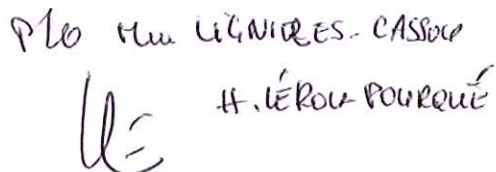 P/o Mme LIGNIERES-CASSOU
H. LEROU-POURQUÉ